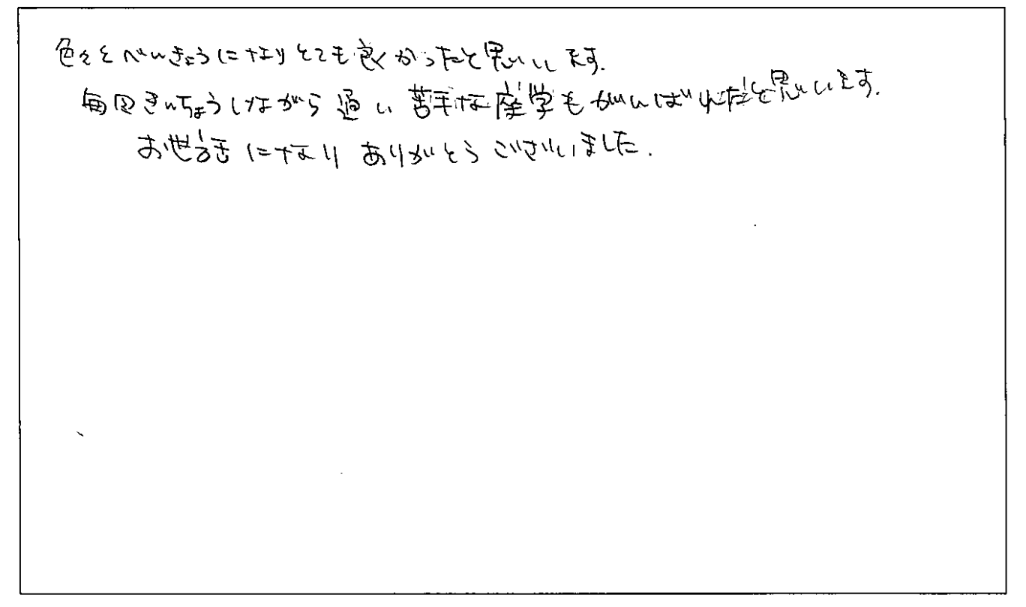 色々とべんきょうになりとても良かったと思います.
毎回きんちょうしながら通い 苦手な座学もがんばれたと思います.
お世話になり ありがとうございました.